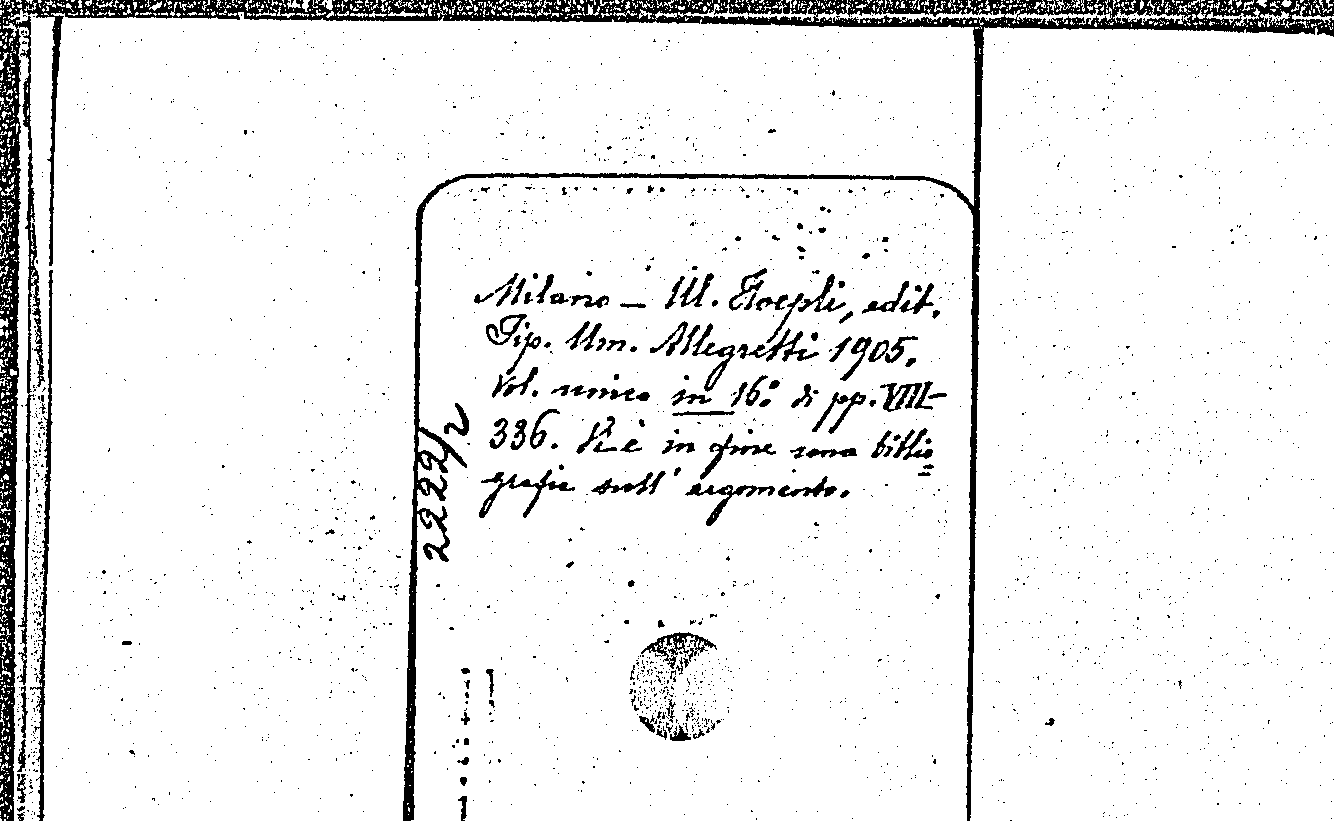 Milano — U. Hoepli, edit.
Tip. Um. Allegretti 1905.
Vol. unico in 16º di pp. VIII-
336. Vi è in fine una biblio=
grafia sull' argomento.
2222/2